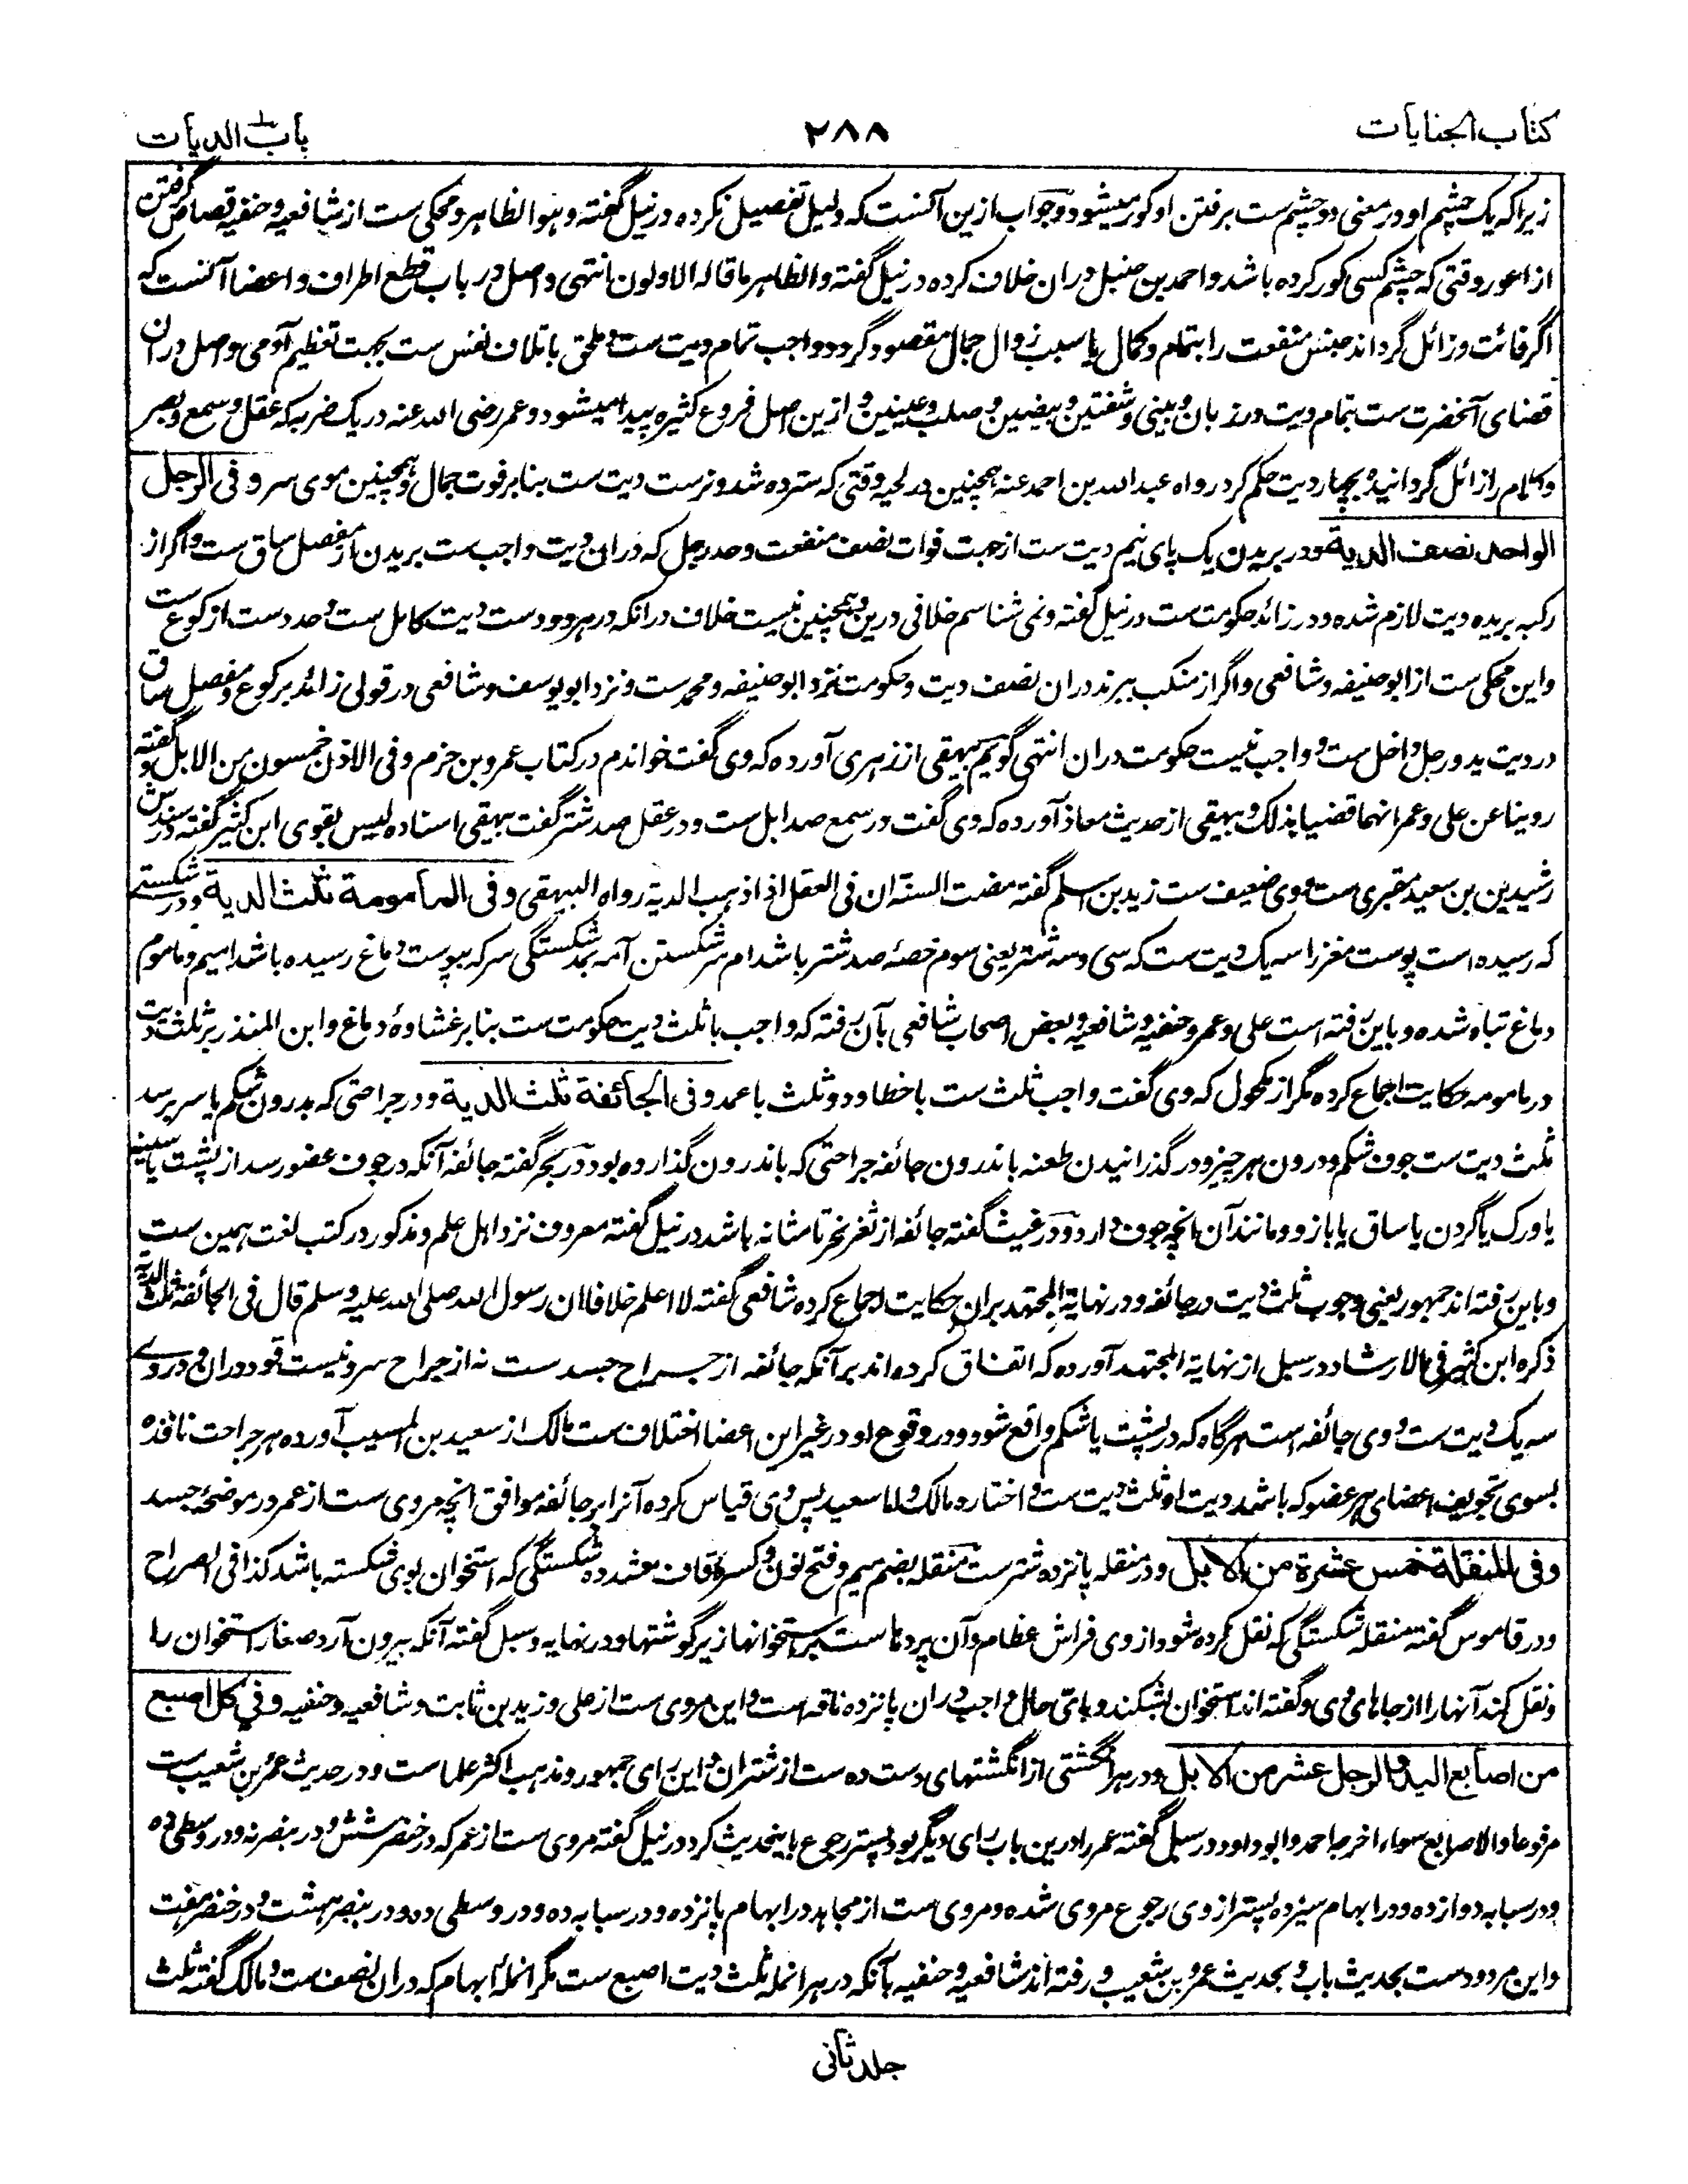 کتاب الجنایات
۲۸۸
باب الدیات
زیراکه یک چشم او در معنی دو چشم ست برفتن او کور میشود وجواب ازین آنست که دلیل تفصیل نکرده در نیل گفته وهو الظاهر ومحکی ست از شافعیه وحنفیه قصاص گرفتن
از اعور وقتی که چشم کسی کور کرده باشد واحمد بن حنبل دران خلاف کرده در نیل گفته والظاهر ما قاله الاولون انتهی واصل در باب قطع اطراف واعضا آنست که
اگر فائت وزائل گرداند جنس منفعت را بتمام وکمال یا سبب زوال جمال مقصود گردد واجب تمام دیت ست وملحق باتلاف نفس ست بجهت تعظیم آدمی واصل دران
قضای آنحضرت ست بتمام دیت در زبان وبینی وشفتین وبیضین وصلب وعینین وازین اصل فروع کثیره پیدا میشود وعمر رضی الله عنه در یک ضربه که عقل وسمع وبصر
وکلام را زائل گردانیده بچهار دیت حکم کرد رواه عبدالله بن احمد عنه همچنین در لحیه وقتی که سترده شد ونرست دیت ست بنابر فوت جمال وهمچنین موی سر وفی الرجل
الواحدة نصف الدیة ودر بریدن یک پای نیم دیت ست از جهت فوات نصف منفعت وحد رجل که دران دیت واجب ست بریدن از مفصل ساق ست واگر از
رکبه بریده دیت لازم شده ودر زائد حکومت ست در نیل گفته ونمی شناسم خلافی درین وهمچنین نیست خلاف درانکه در هر دو دست دیت کامل ست وحد دست از کوع ست
واین محکی ست از ابو حنیفه وشافعی واگر از منکب ببرند دران نصف دیت وحکومت نزد ابو حنیفه ومحمد ست ونزد ابو یوسف وشافعی در قولی زائد بر کوع ومفصل ساق
در دیت ید ورجل داخل ست وواجب نیست حکومت دران انتهی گویم بیهقی از زهری آورده که وی گفت خواندم در کتاب عمرو بن حزم وفی الاذن خمسون من الابل گفته و
روینا عن علی وعمر انهما قضیا بذلک وبیهقی از حدیث معاذ آورده که وی گفت در سمع صد ابل ست ودر عقل صد شتر گفت بیهقی اسناده لیس بقوی ابن کثیر گفته در سندش
رشدین بن سعید مقبری ست ووی ضعیف ست زید بن اسلم گفته مضت السنة ان فی العقل اذا ذهب الدیة رواه البیهقی وفی المأمومة ثلث الدیة ودر شکستی
که رسیده است پوست مغز را سه یک دیت ست که سی وسه شتر یعنی سوم حصهٔ صد شتر باشد ام سر شکستن آمه بمد شکستگی سر که بپوست دماغ رسیده باشد امیم ومأموم
دماغ تباه شده وباین رفته است علی وعمر وحنفیه وشافعیه وبعض اصحاب شافعی بآن رفته که واجب با ثلث دیت حکومت ست بنابر غشاوهٔ دماغ وابن المنذر بر ثلث دیت
در مامومه حکایت اجماع کرده مگر از مکحول که وی گفت واجب ثلث ست با خطا ودو ثلث با عمد وفی الجائفة ثلث الدیة ودر جراحتی که بدرون شکم یا سر برسد
ثلث دیت ست جوف شکم ودرون هر چیز ودر گذرانیدن طعنه باندرون جائفه جراحتی که باندرون گذاره بود در بحر گفته جائفه آنکه در جوف عضو رسد از پشت یا سینه
یا ورک یا گردن یا ساق یا بازو ومانند آن انچه جوف دارد ودر غیث گفته جائفه از ثغر نحر تا مثانه باشد در نیل گفته معروف نزد اهل علم ومذکور در کتب لغت همین ست
وباین رفته اند جمهور یعنی وجوب ثلث دیت در جائفه ودر نهایة المجتهد بران حکایت اجماع کرده شافعی گفته لا اعلم خلافا ان رسول الله صلی الله علیه وسلم قال فی الجائفة ثلث الدیة
ذکره ابن کثیر فی الارشاد ودر سبل از نهایة المجتهد آورده که اتفاق کرده اند بر آنکه جائفه از جراح جسد ست نه از جراح سر ونیست قود دران ودر وے
سه یک دیت ست ووی جائفه است هرگاه که در پشت یا شکم واقع شود ودر وقوع او در غیر این اعضا اختلاف ست مالک از سعید بن المسیب آورده هر جراحت نافذه
بسوی تجویف اعضای هر عضو که باشد دیت او ثلث دیت ست واختاره مالک واما سعید پس وی قیاس کرده آنرا بر جائفه موافق انچه مروی ست از عمر در موضحهٔ جسد
وفی المنقلة خمس عشرة من الابل ودر منقله پانزده شتر ست منقله بضم میم وفتح نون وکسر قاف مشدده شکستگی که استخوان بوی شکسته باشد کذا فی الصراح
ودر قاموس گفته منقله شکستگی که نقل کرده شود از وی فراش عظام وآن پرده ها ست بر استخوانها زیر گوشتها ودر نهایه وسبل گفته آنکه بیرون آرد صغار استخوان را
ونقل کند آنها را از جاهای وی وگفته اند استخوان بشکند وبای حال واجب دران پانزده ناقه است واین مروی ست از علی وزید بن ثابت وشافعیه وحنفیه وفی کل اصبع
من اصابع الید والرجل عشر من الابل ودر هر انگشتی از انگشتهای دست ده ست از شتران واین رای جمهور ومذهب اکثر علما ست ودر حدیث عمرو بن شعیب ست
مرفوعا والاصابع سواء اخرجه احمد وابو داود ودر سبل گفته عمر را درین باب رای دیگر بود پستر رجوع باینحدیث کرد در نیل گفته مروی ست از عمر که در خنصر شش ودر بنصر نه ودر وسطی ده
ودر سبابه دوازده ودر ابهام سیزده پستر از وی رجوع مروی شده ومروی ست از مجاهد در ابهام پانزده ودر سبابه ده ودر وسطی ده ودر بنصر هشت ودر خنصر هفت
واین مردود ست بحدیث باب وبحدیث عمرو بن شعیب ورفته اند شافعیه وحنفیه بآنکه در هر انمله ثلث دیت اصبع ست مگر انملهٔ ابهام که دران نصف ست ومالک گفته ثلث
جلد ثانی